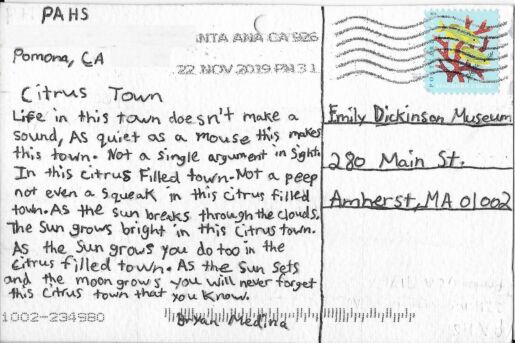 PAHS
Pomona, CA
NTA ANA CA 926
22 NOV 2019 PM 3 L
Citrus Town
Life in this town doesn't make a
sound, As quiet as a mouse this makes
this town. Not a single argument in sight.
In this citrus filled town. Not a peep
not even a squeak in this citrus filled
town. As the sun breaks through the clouds,
The Sun grows bright in this Citrus town.
As the Sun grows you do too in the
Citrus filled town. As the Sun sets
and the moon grows you will never forget
this Citrus town that you know.
Bryan Medina
1002-234980
Emily Dickinson Museum
280 Main St.
Amherst, MA 01002